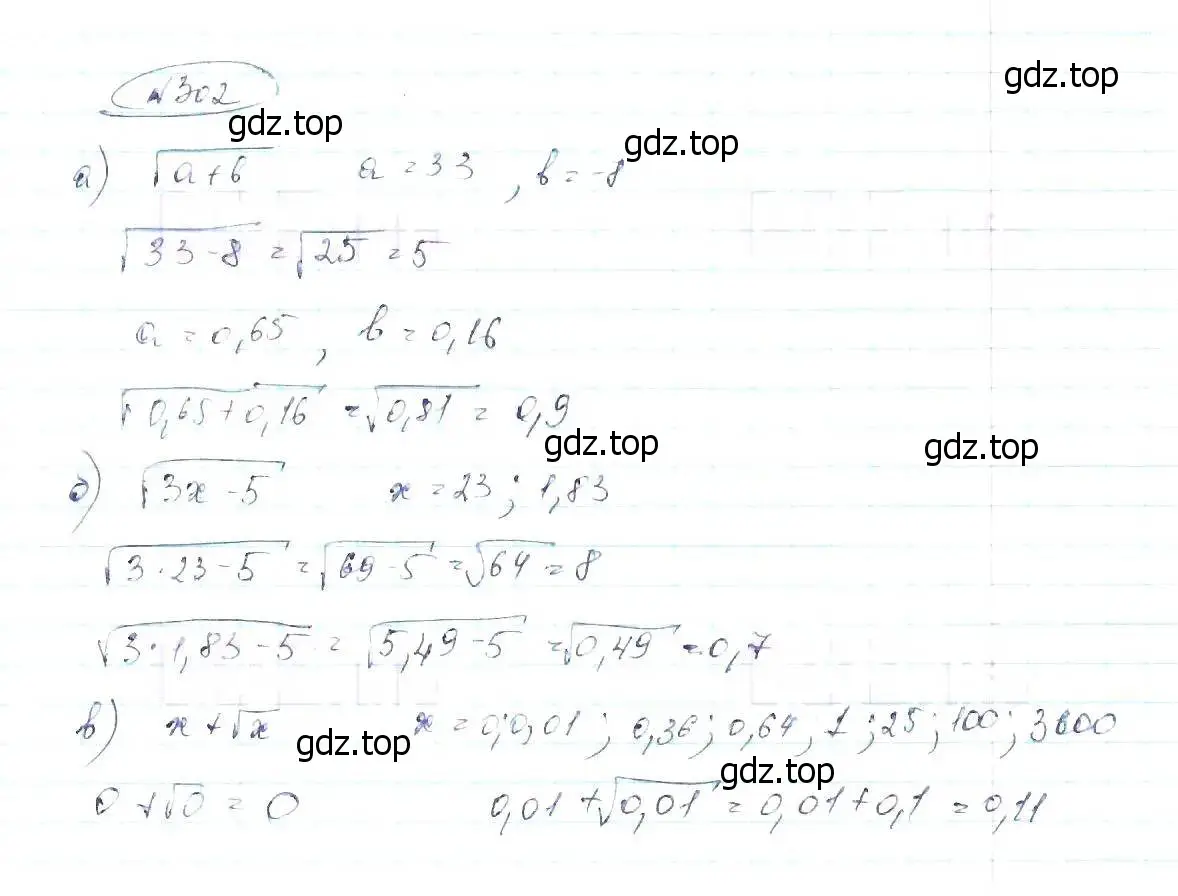 №302
gdz.top
gdz.top
gdz.top
а) √(a+b) a = 33, b = -8
√(33-8) = √25 = 5
a = 0,65, b = 0,16
√(0,65+0,16) = √0,81 = 0,9
gdz.top
gdz.top
б) √(3x-5) x = 23; 1,83
√(3·23-5) = √(69-5) = √64 = 8
√(3·1,83-5) = √(5,49-5) = √0,49 = 0,7
в) x+√x x = 0; 0,01; 0,36; 0,64, 1; 25; 100; 3600
gdz.top
gdz.top
0+√0 = 0 0,01+√0,01 = 0,01+0,1 = 0,11